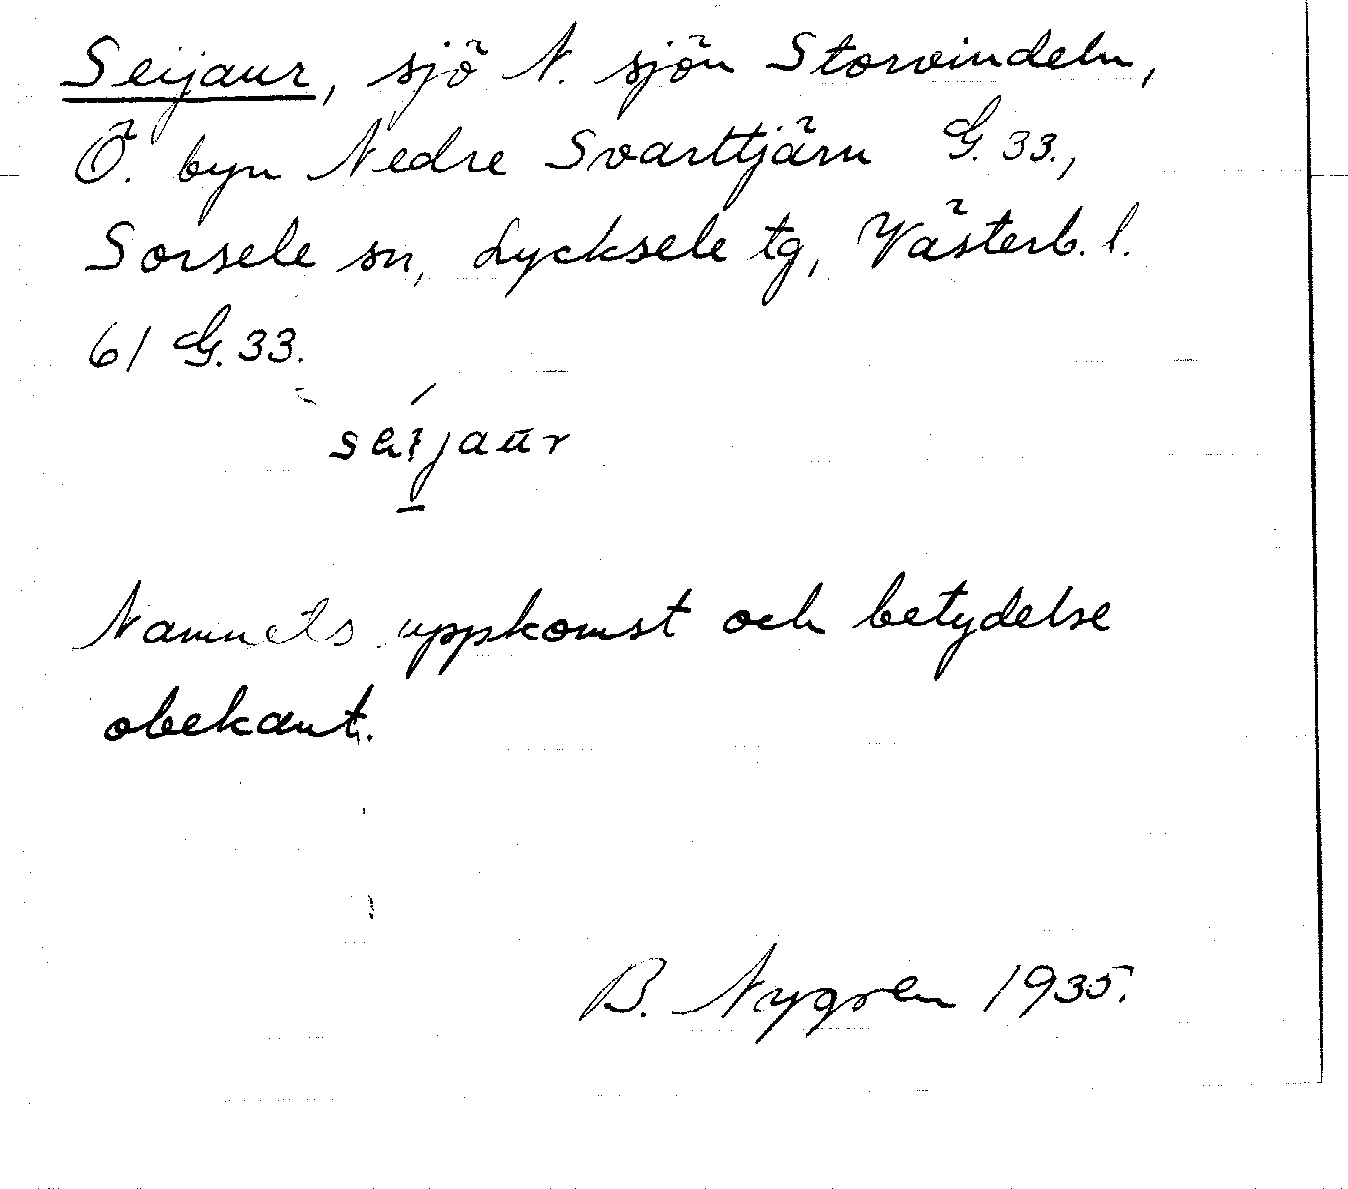 Seijaur, sjö N. sjön Storvindeln,
Ö. byn Nedre Svarttjärn G. 33.,
Sorsele sn, Lycksele tg, Västerb. l.
61 G. 33.
seijaur
Namnets uppkomst och betydelse
obekant.
B. Nygren 1935.